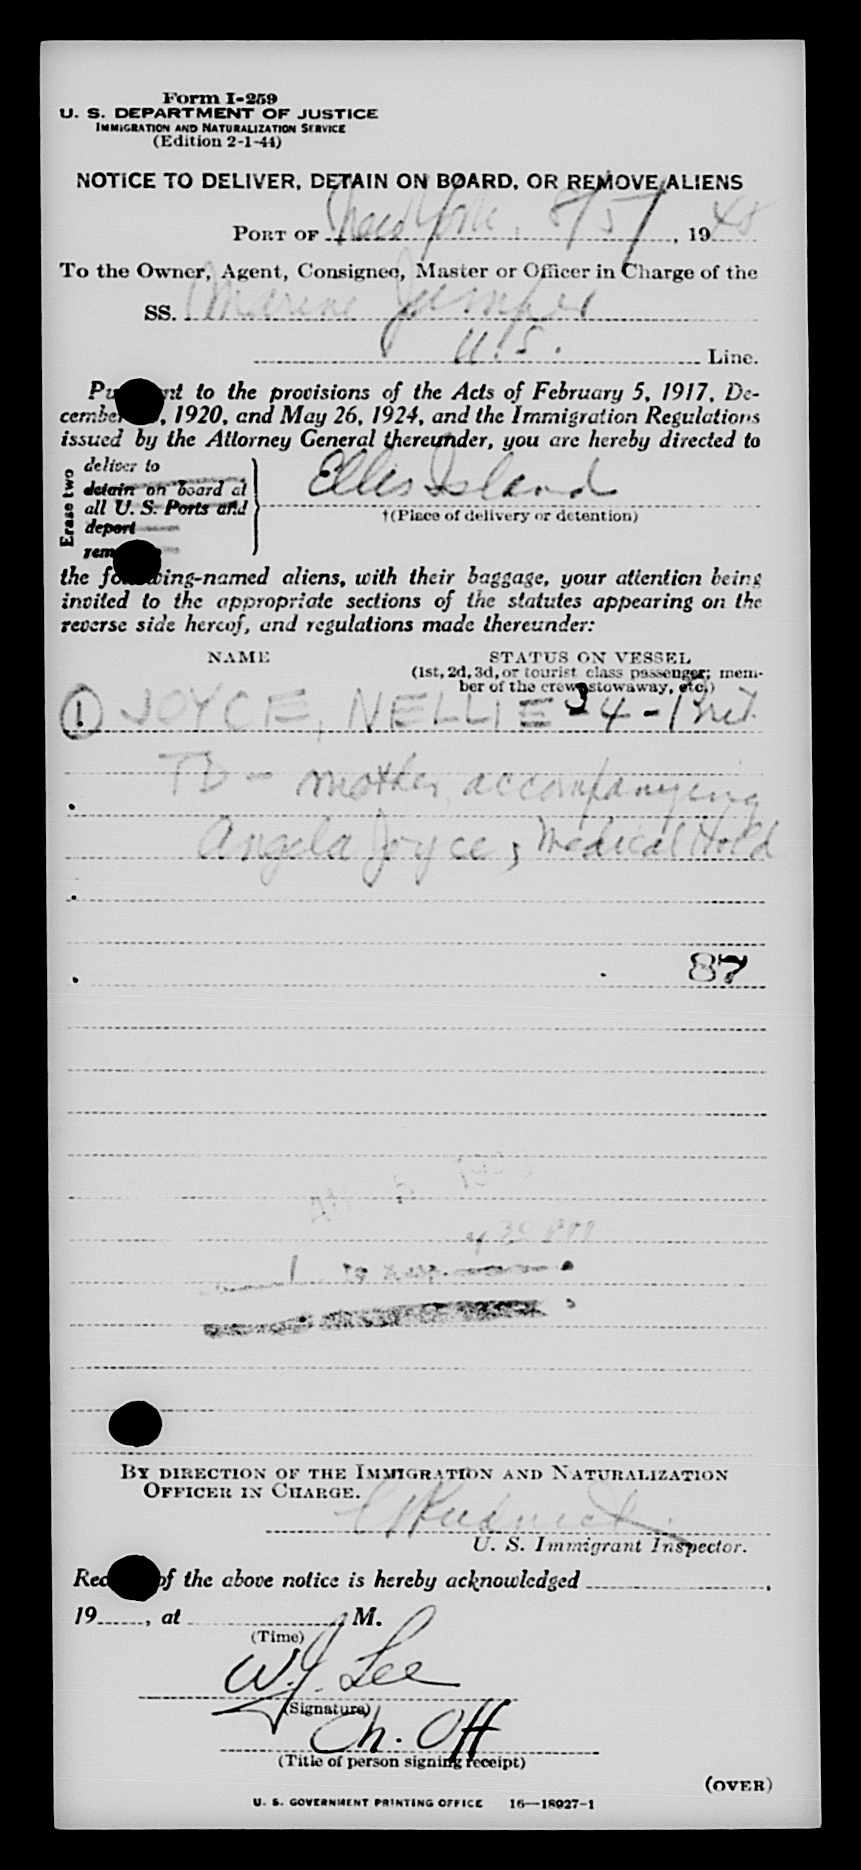 Form I-259
U. S. DEPARTMENT OF JUSTICE
IMMIGRATION AND NATURALIZATION SERVICE
(Edition 2-1-44)
NOTICE TO DELIVER, DETAIN ON BOARD, OR REMOVE ALIENS
PORT OF New York, 8/5/, 1948
To the Owner, Agent, Consignee, Master or Officer in Charge of the
SS. Marine Jumper
U.S. Line.
to the provisions of the Acts of February 5, 1917, De-
cember , 1920, and May 26, 1924, and the Immigration Regulations
issued by the Attorney General thereunder, you are hereby directed to
Erase two
deliver to
detain on board at
all U. S. Ports and
deport
Ellis Island
†(Place of delivery or detention)
the following-named aliens, with their baggage, your attention being
invited to the appropriate sections of the statutes appearing on the
reverse side hereof, and regulations made thereunder:
NAME STATUS ON VESSEL
(1st, 2d, 3d, or tourist class passenger; mem-
ber of the crew, stowaway, etc.)
1. JOYCE, NELLIE - 34 - Brit.
TD - mother accompanying
Angela Joyce; Medical Hold
87
BY DIRECTION OF THE IMMIGRATION AND NATURALIZATION
OFFICER IN CHARGE.
U. S. Immigrant Inspector.
of the above notice is hereby acknowledged ,
19 , at M.
(Time)
W. J. Lee
(Signature)
Ch. Off
(Title of person signing receipt)
(OVER)
U. S. GOVERNMENT PRINTING OFFICE 16—18027-1